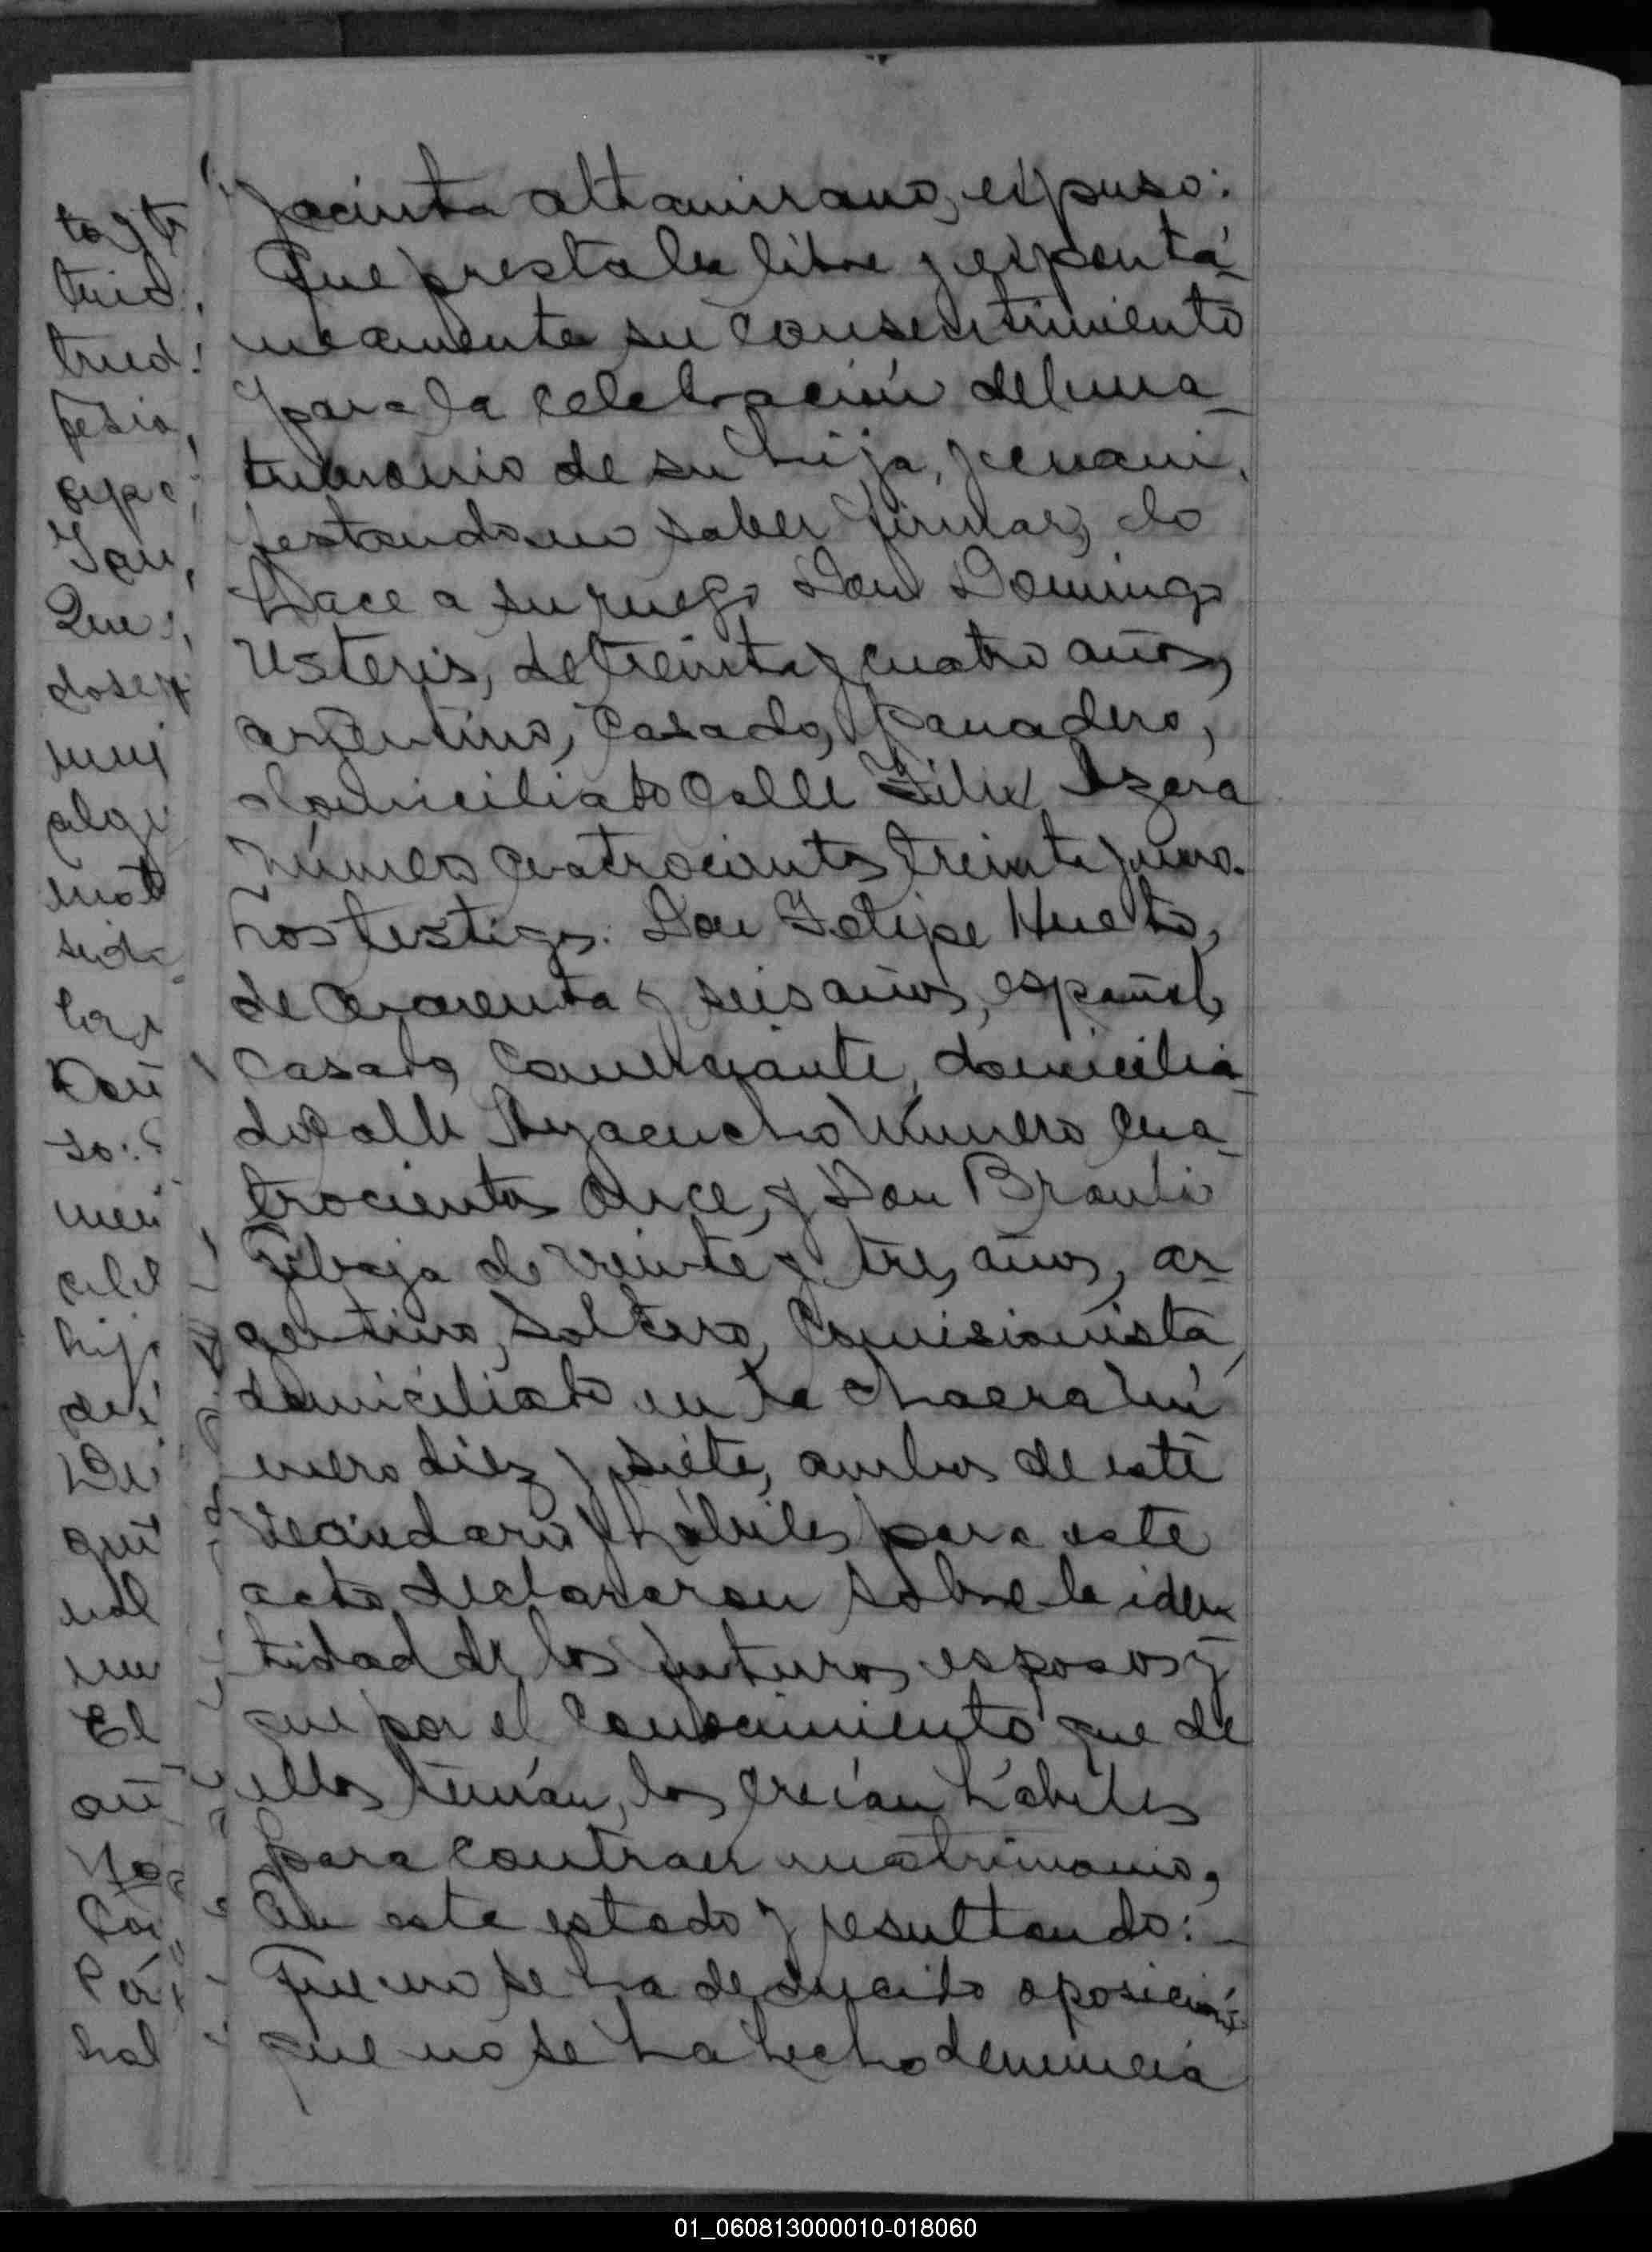 Jacinta Altamirano, expuso:
Que presta la libre y expontá-
neamente su consentimiento
para la celebración del ma-
trimonio de su hija, y mani-
festando no saber firmar, lo
hace a su ruego Don Domingo
Usteris, de treinta y cuatro años,
argentino, casado, panadero,
domiciliado calle Félix Azara
número cuatrocientos treinta y uno.
Los testigos: Don Felipe Hueto,
de cuarenta y seis años, español,
casado, comerciante, domicilia-
do calle Ayacucho número cua-
trocientos once, y Don Braulio
Tibaja de veinte y tres años, ar-
gentino, soltero, comisionista,
domiciliado en la chacra nú
mero diez y siete, ambos de este
vecindario y hábiles para este
acto declararon sobre la iden
tidad de los futuros esposos y
que por el conocimiento que de
ellos tenían, los creían hábiles
para contraer matrimonio,
En este estado y resultando:-
Que no se ha deducido oposición
que no se ha hecho denuncia
01_060813000010-018060